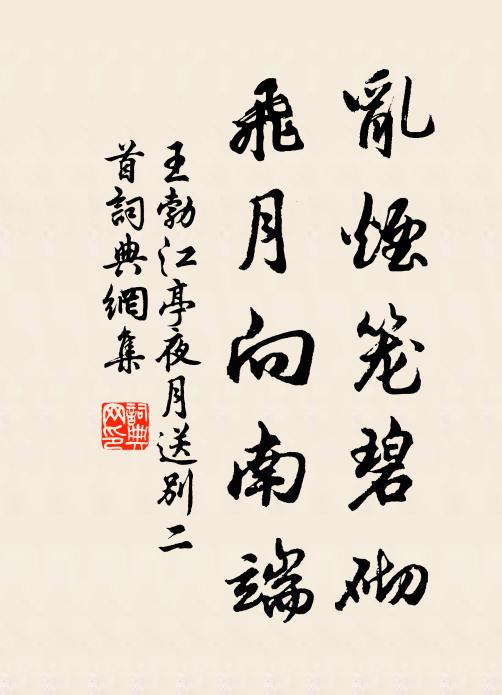 亂煙笼碧砌
飛月向南端
王勃江亭夜月送别二
首詞典網集
詞典
网印